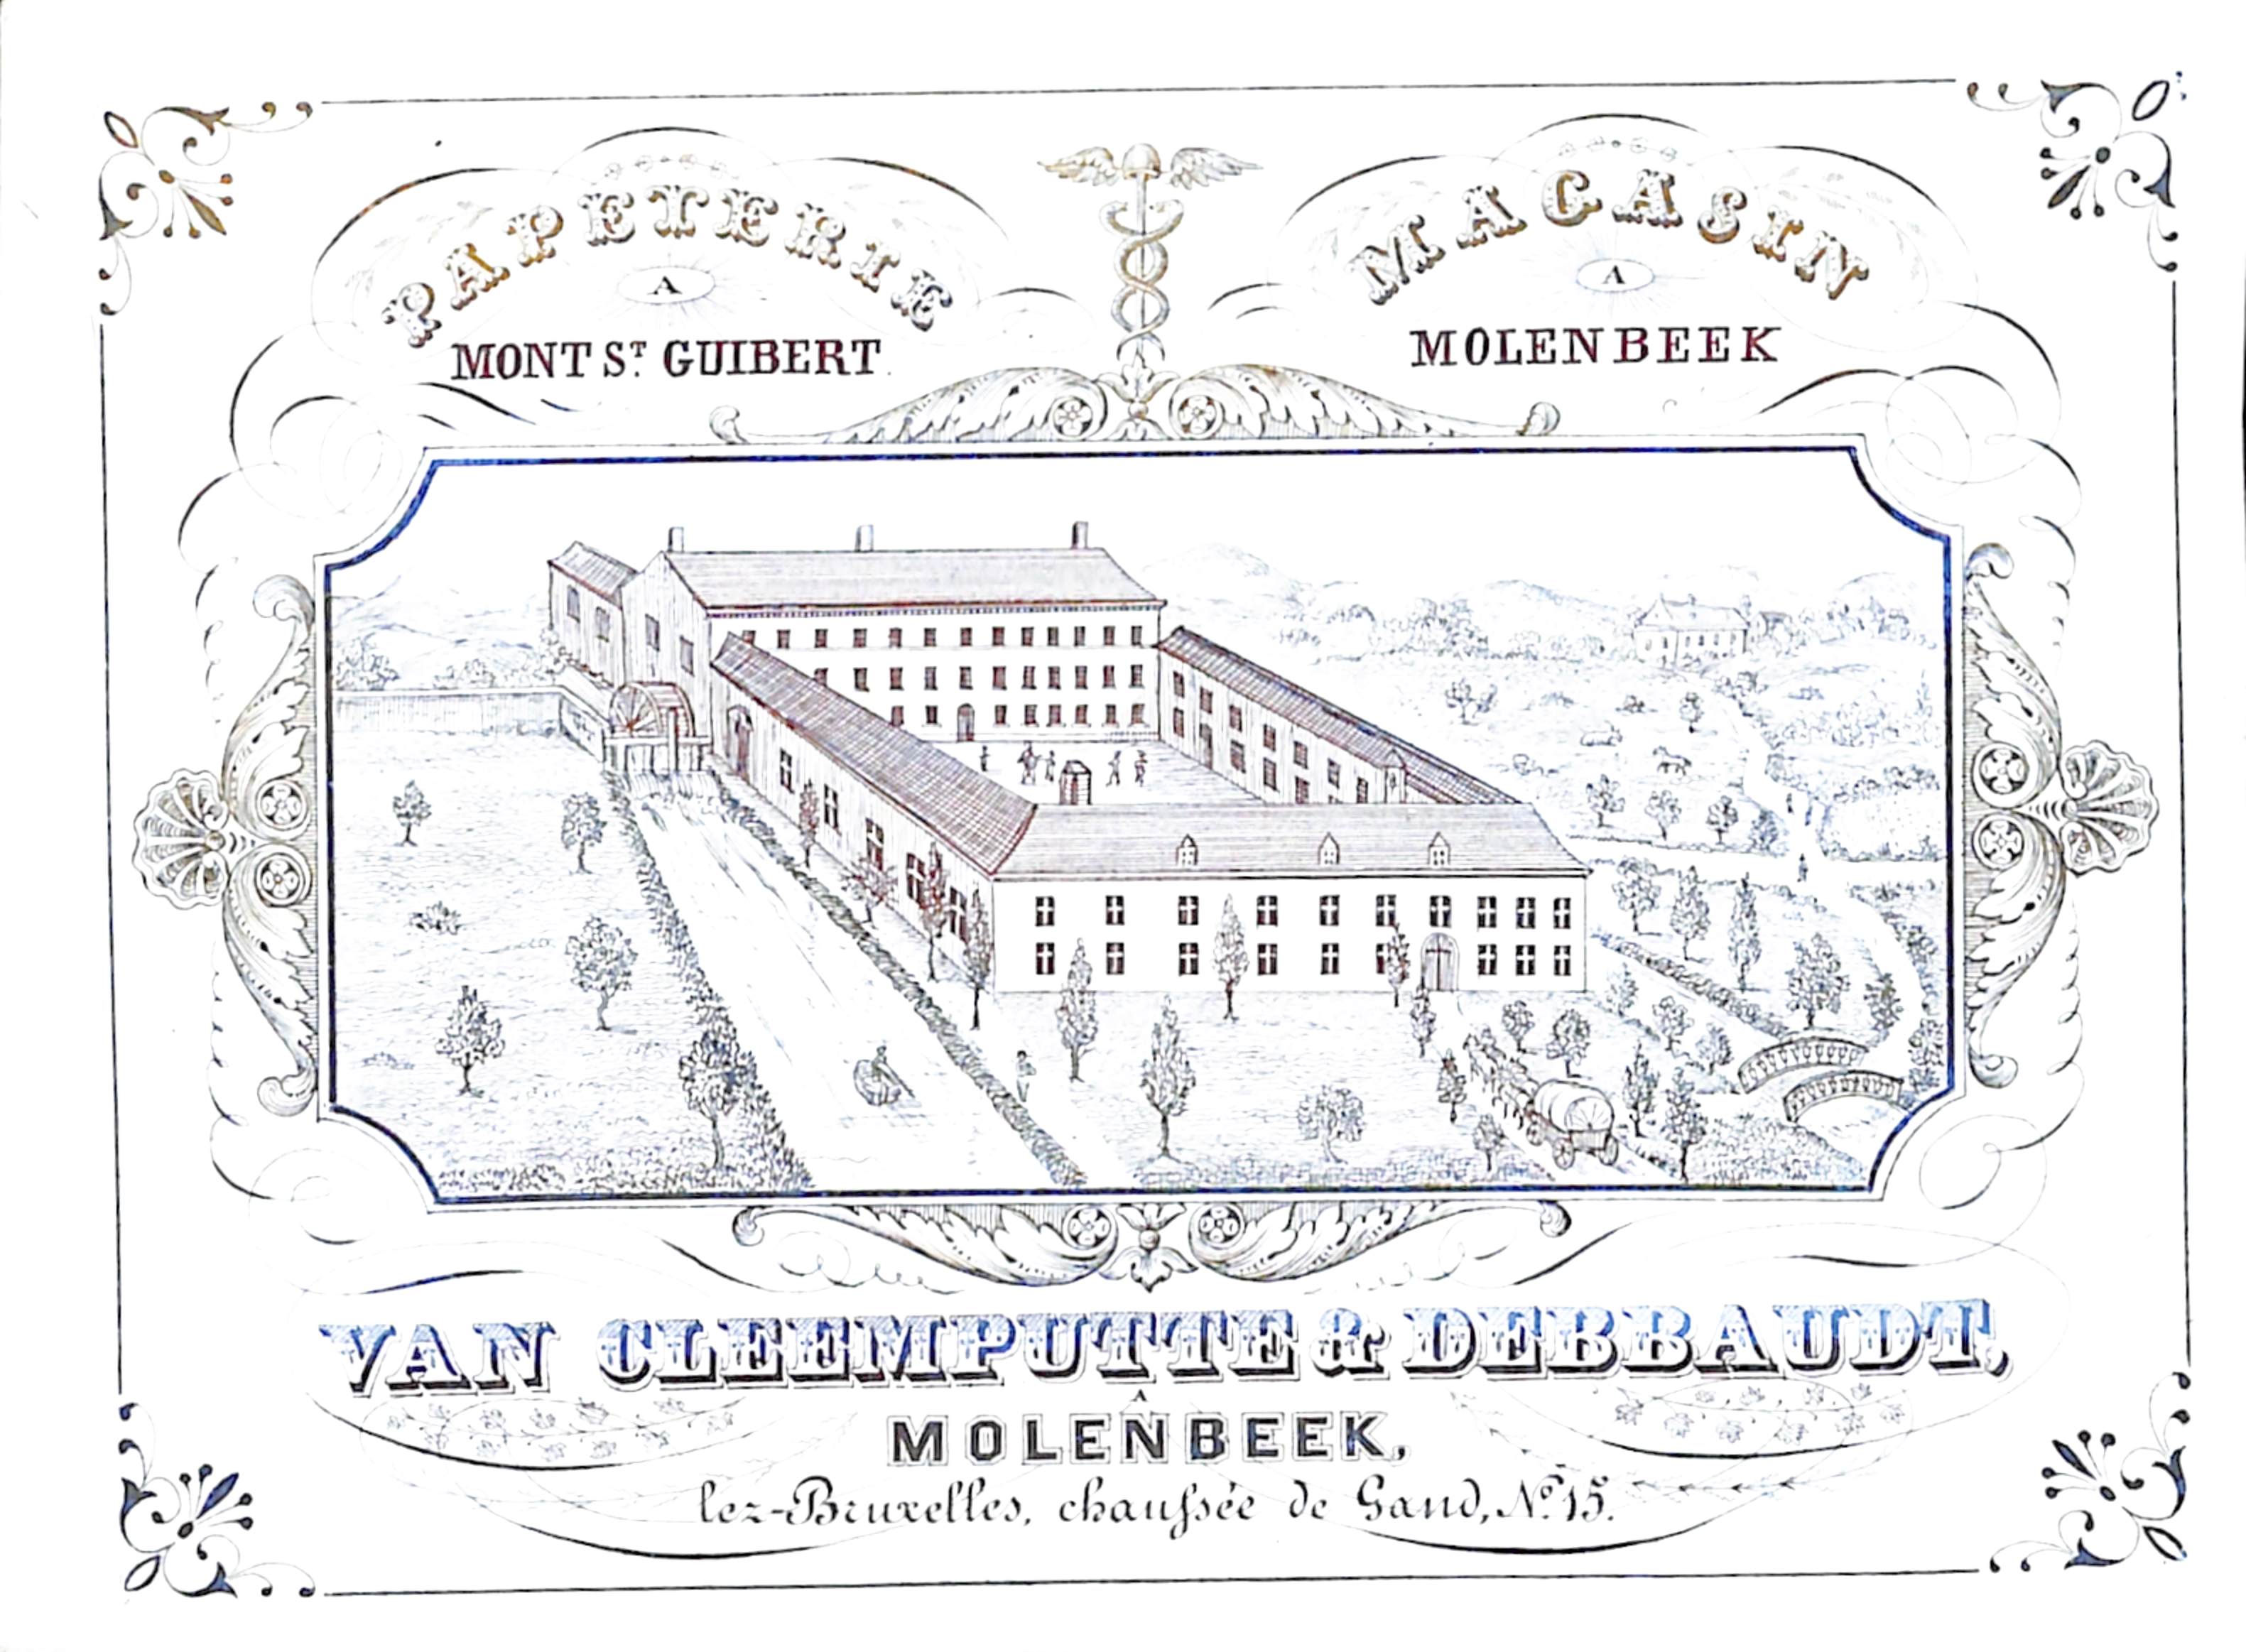 PAPETERIE
A
MONT ST. GUIBERT
MAGASIN
A
MOLENBEEK
VAN CLEEMPUTTE & DEBBAUDT,
A
MOLENBEEK,
lez-Bruxelles, chaussée de Gand, No. 15.